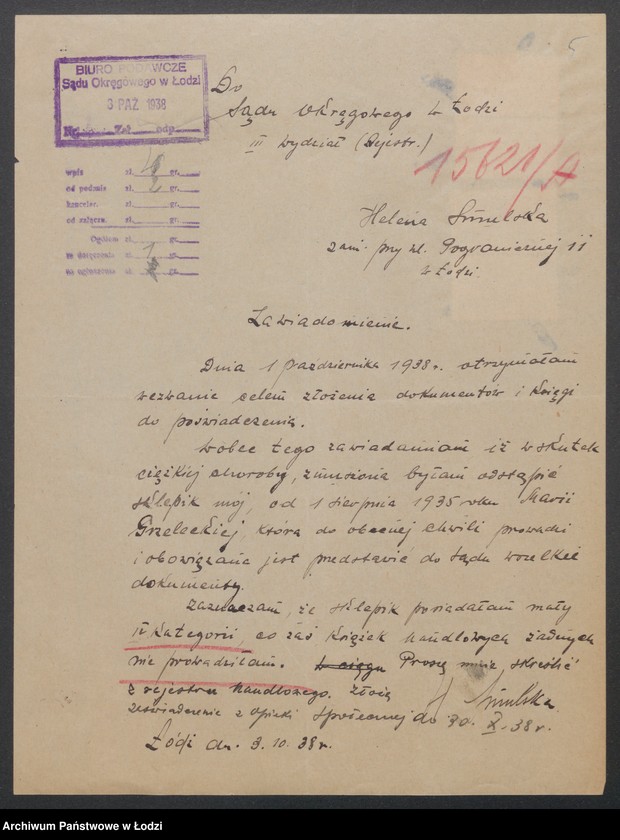 BIURO PODAWCZE
Sądu Okręgowego w Łodzi
3 PAŹ 1938
Nr. Zał. odp.
wpis zł. 4 gr.
od podania zł. 2 gr.
kancelar. zł. gr.
od załącz. zł. gr.
Ogółem zł. gr.
za doręczenie zł. 1 gr.
za ogłoszenie zł. gr.
Do
Sądu Okręgowego w Łodzi
III wydział (Rejestr.)
15621/A
Helena
zam. przy ul. Pogranicznej 11
w Łodzi.
Zawiadomienie.
Dnia 1 października 1938 r. otrzymałam
wezwanie celem złożenia dokumentów i Księgi
do poświadczenia.
Wobec tego zawiadamiam iż wskutek
ciężkiej choroby, zmuszona byłam odstąpić
sklepik mój, od 1 sierpnia 1935 roku Marii
Grzeleckiej, która do obecnej chwili prowadzi
i obowiązana jest przedstawić do sądu wszelkie
dokumenty.
Zaznaczam, że sklepik posiadałam mały
IV Kategorii, co zaś Książek handlowych żadnych
nie prowadziłam. w ciągu Proszę mnie skreślić
z rejestru handlowego. Złożę
zaświadczenie z opieki społecznej do 20. X. 38 r.
Łódź dn. 3.10.38 r.
Archiwum Państwowe w Łodzi